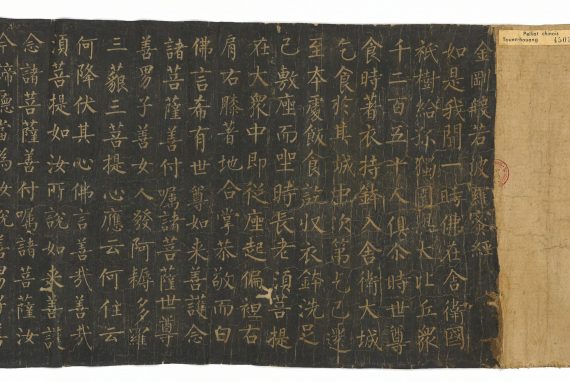 Pelliot chinois
Touen-houang
金剛般若波羅蜜經
如是我聞一時佛在舍衛國
祇樹給孤獨園與大比丘衆
千二百五十人俱尒時世尊
食時著衣持鉢入舍衛大城
乞食於其城中次第乞已還
至本處飯食訖收衣鉢洗足
已敷座而坐時長老須菩提
在大衆中即從座起偏袒右
肩右膝著地合掌恭敬而白
佛言希有世尊如來善護念
諸菩薩善付囑諸菩薩世尊
善男子善女人發阿耨多羅
三藐三菩提心應云何住云
何降伏其心佛言善哉善哉
須菩提如汝所說如來善護
念諸菩薩善付囑諸菩薩汝